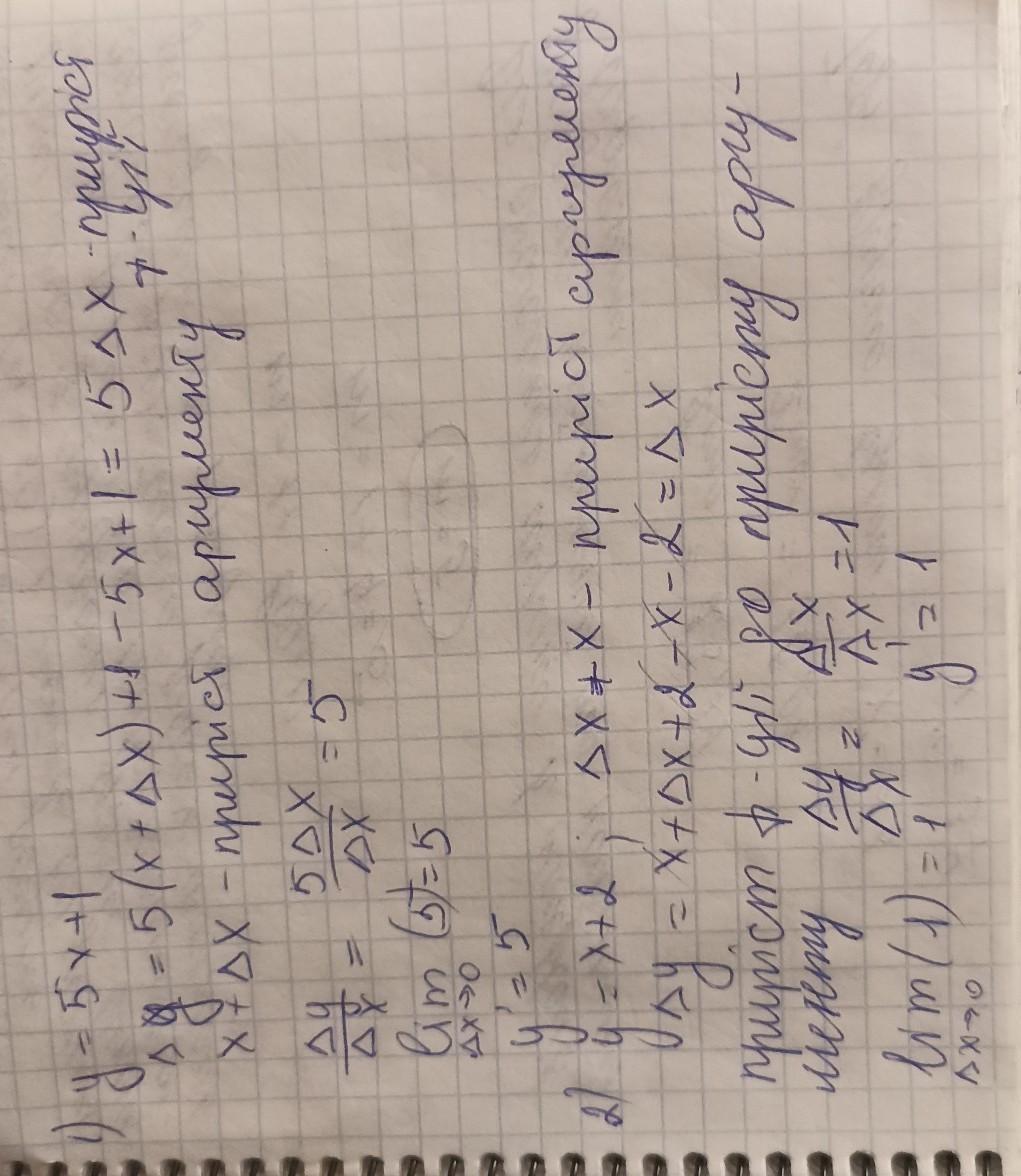 1) y = 5x+1
Δy = 5(x+Δx)+1-5x+1 = 5Δx - приріст ф-ції
x+Δx - приріст аргументу
Δy/Δx = 5Δx/Δx = 5
lim (5) = 5
Δx→0
y' = 5
2) y = x+2, Δx+x - приріст аргументу
Δy = x+Δx+2-x-2 = Δx
приріст ф-ції до прирісту аргу-
менту Δy/Δx = Δx/Δx = 1
lim (1) = 1 y' = 1
Δx→0